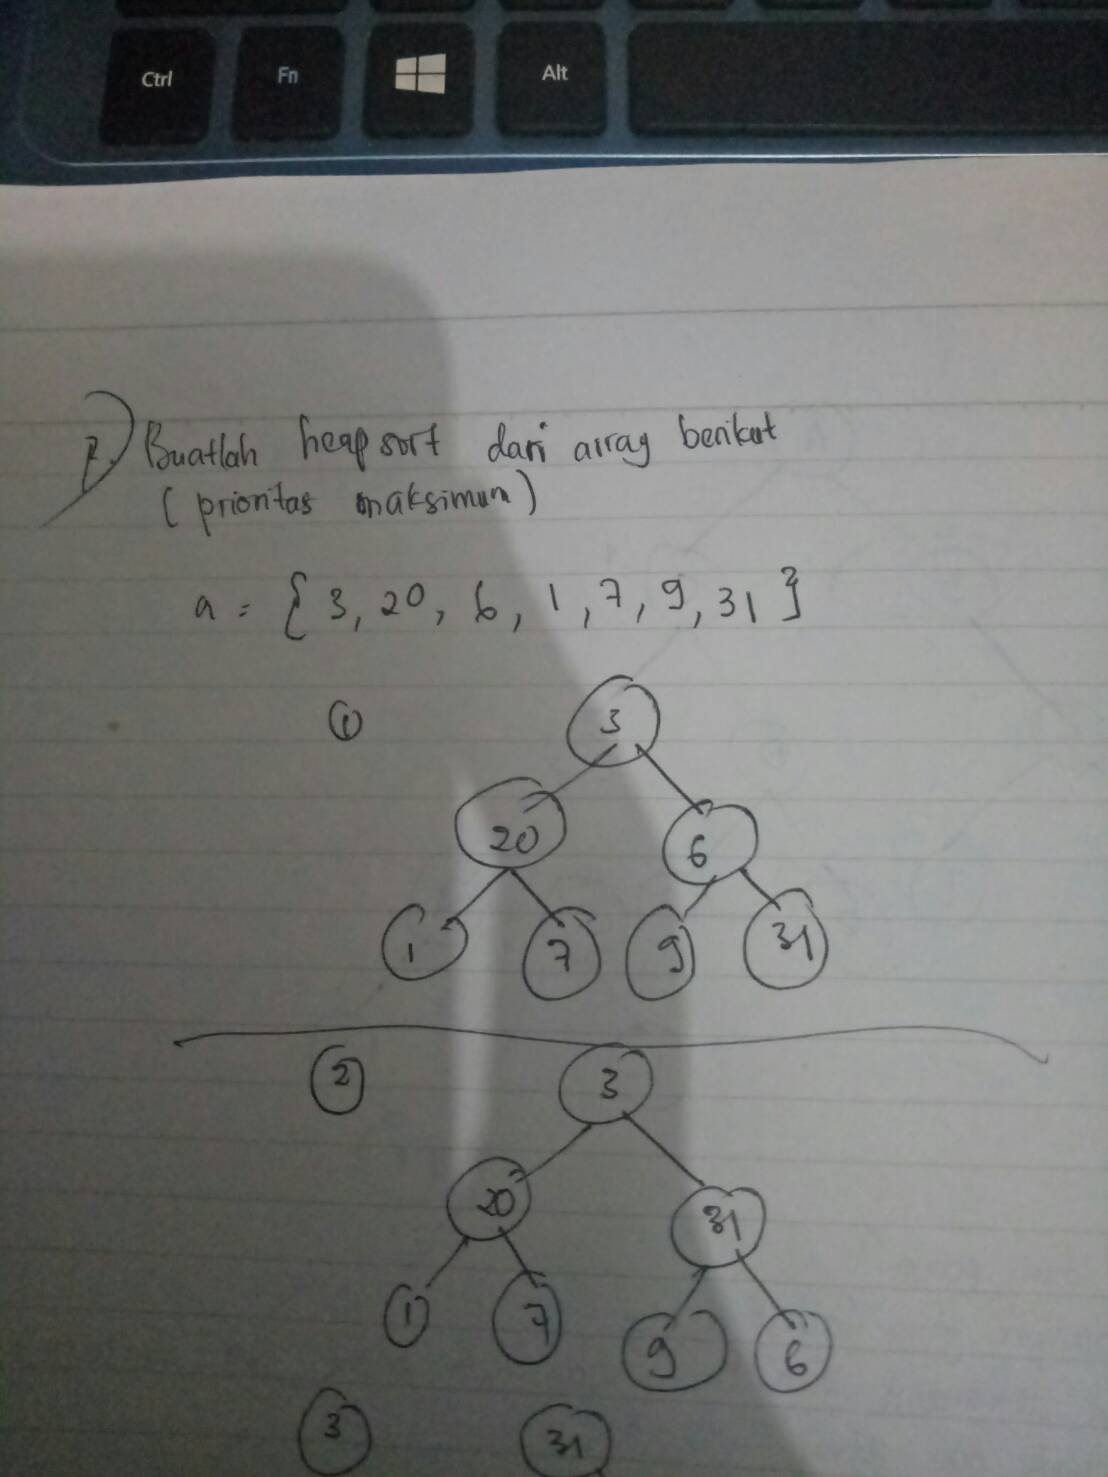 Ctrl Fn Alt
2.) Buatlah heap sort dari array berikut
(prioritas maksimum)
a = { 3, 20, 6, 1, 7, 9, 31 }
① 3
20 6
1 7 9 31
② 3
20 31
1 7 9 6
③ 31